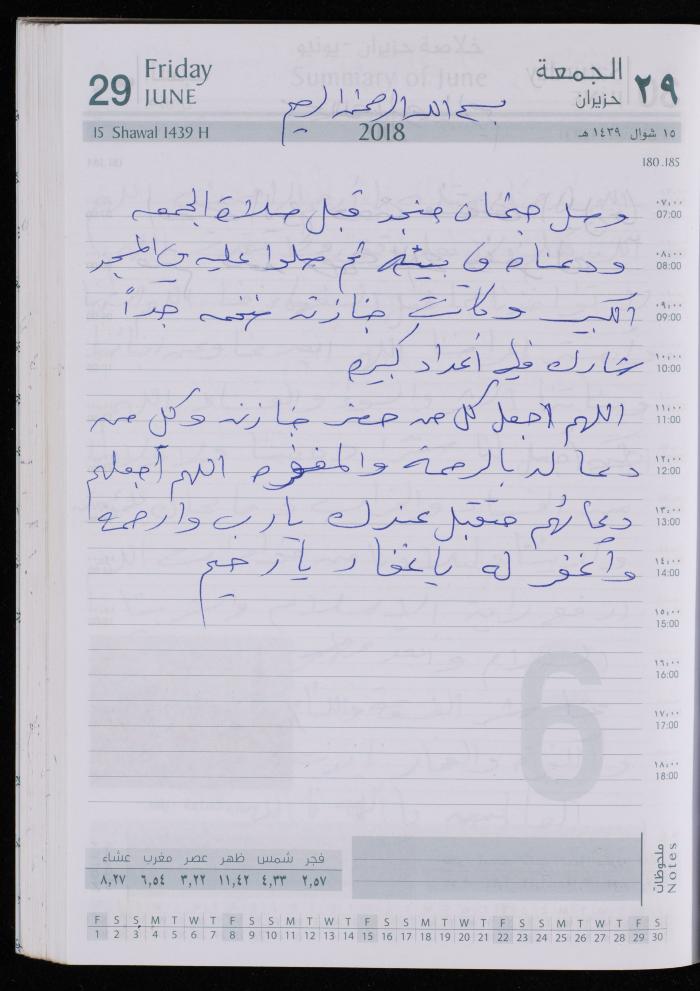 29
Friday
JUNE
الجمعة
حزيران
٢٩
بسم الله الرحمن الرحيم
15 Shawal 1439 H
2018
١٥ شوال ١٤٣٩ هـ
180.185
٠٧:٠٠
07:00
وصل جثمان منجد قبل صلاة الجمعه
٠٨:٠٠
08:00
ودعناه في بيته ثم صلوا عليه في المسجد
٠٩:٠٠
09:00
الكبير وكانت جنازته ضخمه جداً
١٠:٠٠
10:00
شارك فيها أعداد كبيره
١١:٠٠
11:00
اللهم اجعل كل من حضر جنازته وكل من
١٢:٠٠
12:00
دعا له بالرحمة والمغفره اللهم أجعلهم
١٣:٠٠
13:00
دعائهم متقبل عندك يارب وارحمه
١٤:٠٠
14:00
وأغفر له ياغفار يارحيم
١٥:٠٠
15:00
١٦:٠٠
16:00
١٧:٠٠
17:00
١٨:٠٠
18:00
6
فجر شمس ظهر عصر مغرب عشاء
٢,٥٧ ٤,٣٣ ١١,٤٢ ٣,٢٢ ٦,٥٤ ٨,٢٧
ملحوظات
Notes
F S S M T W T F S S M T W T F S S M T W T F S S M T W T F S
1 2 3 4 5 6 7 8 9 10 11 12 13 14 15 16 17 18 19 20 21 22 23 24 25 26 27 28 29 30